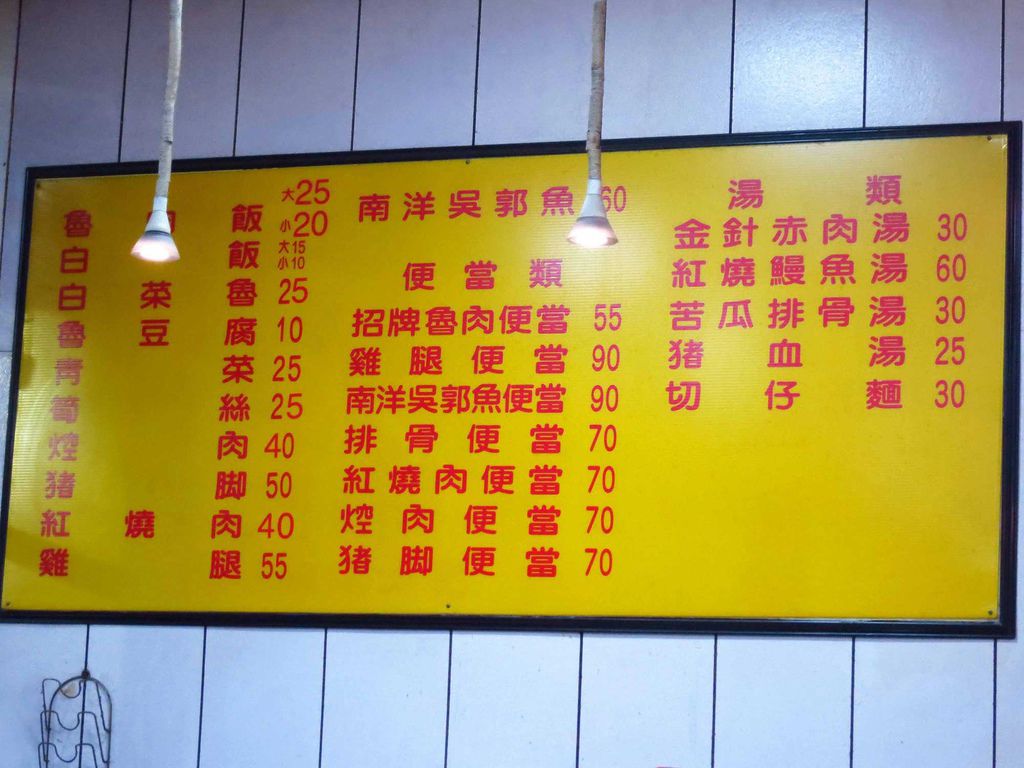 魯肉飯 大25 小20
白飯 大15 小10
白菜魯 25
魯豆腐 10
青菜 25
筍絲 25
焢肉 40
猪脚 50
紅燒肉 40
雞腿 55
南洋吳郭魚 60
便當類
招牌魯肉便當 55
雞腿便當 90
南洋吳郭魚便當 90
排骨便當 70
紅燒肉便當 70
焢肉便當 70
猪脚便當 70
湯類
金針赤肉湯 30
紅燒鰻魚湯 60
苦瓜排骨湯 30
猪血湯 25
切仔麵 30